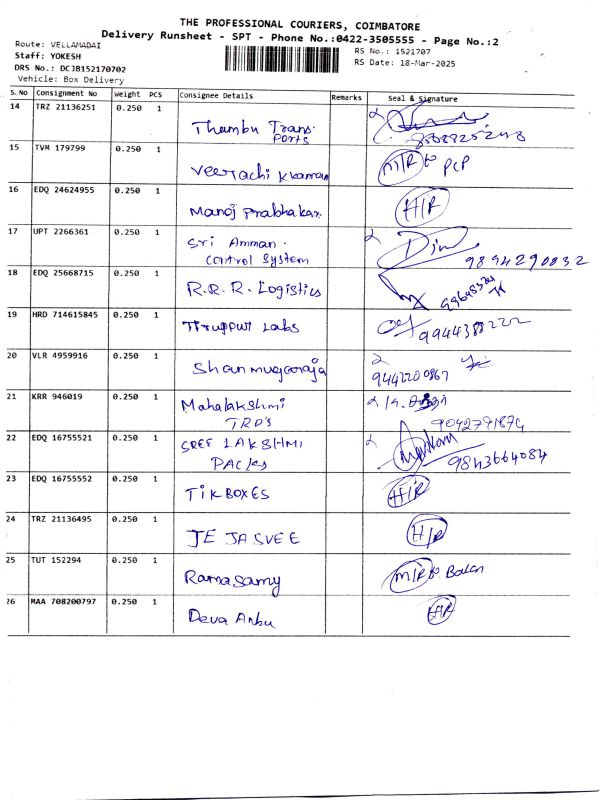 THE PROFESSIONAL COURIERS, COIMBATORE
Delivery Runsheet - SPT - Phone No.:0422-3505555 - Page No.:2
Route: VELLAMADAI
RS No.: 1521707
Staff: YOKESH
RS Date: 18-Mar-2025
DRS No.: DCJB152170702
Vehicle: Box Delivery
S.No Consignment No Weight PCS Consignee Details Remarks Seal & Signature
14 TRZ 21136251 0.250 1 Thambu Trans-
Ports
15 TVM 179799 0.250 1 Veerachi Kkaman M/R to PCP
16 EDQ 24624955 0.250 1 Manoj Prabhakar. H/R
17 UPT 2266361 0.250 1 Sri Amman.
Control System 9894290832
18 EDQ 25668715 0.250 1 R.R.R. Logistics
19 HRD 714615845 0.250 1 Tiruppur Labs 9944388222
20 VLR 4959916 0.250 1 Shanmugaraja
9442200867
21 KRR 946019 0.250 1 Mahalakshmi
TRD's 9042791874
22 EDQ 16755521 0.250 1 SREE LAKSHMI
PACKs 9843664084
23 EDQ 16755552 0.250 1 TIKBOXES H/R
24 TRZ 21136495 0.250 1 JEJASVEE H/R
25 TUT 152294 0.250 1 Ramasamy M/R to Balan
26 MAA 708200797 0.250 1 Deva Anbu H/R